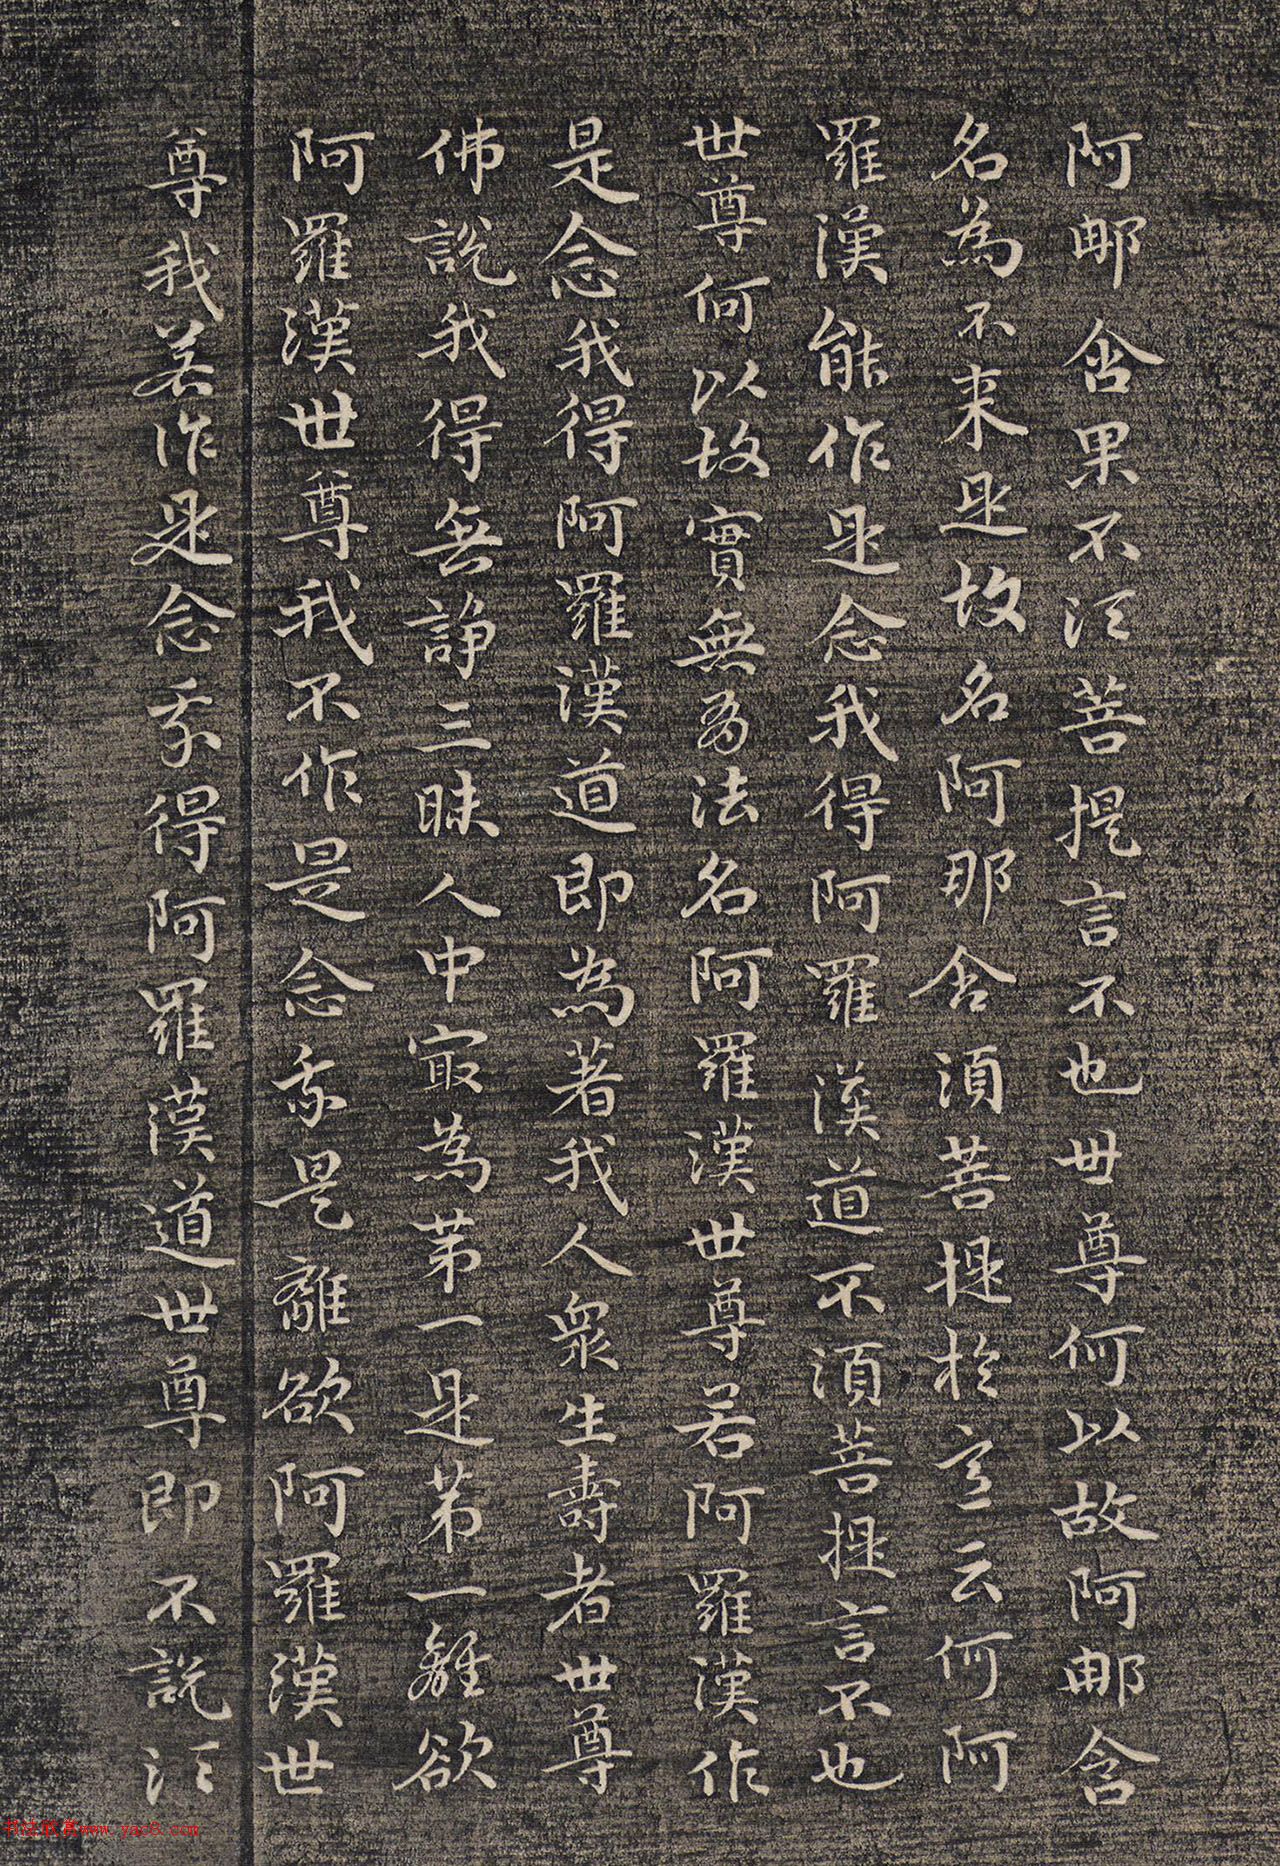 阿那含果不須菩提言不也世尊何以故阿那含
名為不來是故名阿那含須菩提於意云何阿
羅漢能作是念我得阿羅漢道不須菩提言不也
世尊何以故實無為法名阿羅漢世尊若阿羅漢作
是念我得阿羅漢道即為著我人衆生壽者世尊
佛說我得無諍三昧人中冣為苐一是苐一離欲
阿羅漢世尊我不作是念我是離欲阿羅漢世
尊我若作是念我得阿羅漢道世尊即不說須
www.yac8.com